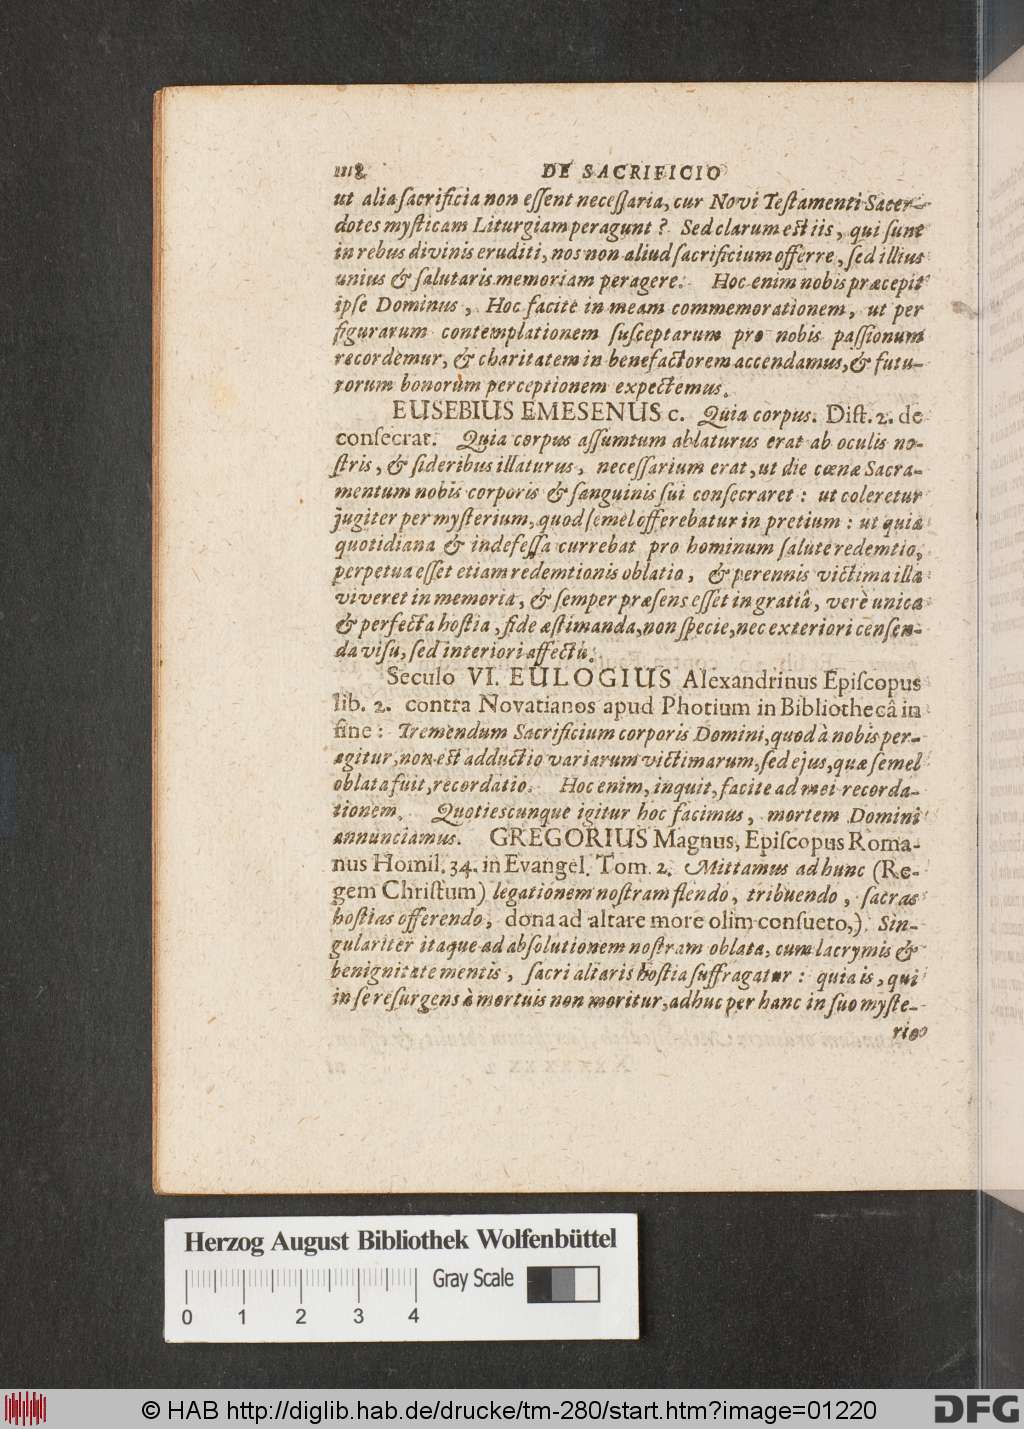 1118 DE SACRIFICIO
ut alia ſacrificia non eſſent neceſſaria, cur Novi Teſtamenti Sacer-
dotes myſticam Liturgiam peragunt? Sed clarum eſt iis, qui ſunt
in rebus divinis eruditi, nos non aliud ſacrificium offerre, ſed illius
unius & ſalutaris memoriam peragere. Hoc enim nobis præcepit
ipſe Dominus, Hoc facite in meam commemorationem, ut per
figurarum contemplationem ſuſceptarum pro nobis paſſionum
recordemur, & charitatem in benefactorem accendamus, & futu-
rorum bonorum perceptionem expectemus.
EUSEBIUS EMESENUS c. Quia corpus. Diſt. 2. de
conſecrat. Quia corpus aſſumtum ablaturus erat ab oculis no-
ſtris, & ſideribus illaturus, neceſſarium erat, ut die cœnæ Sacra-
mentum nobis corporis & ſanguinis ſui conſecraret: ut coleretur
jugiter per myſterium, quod ſemel offerebatur in pretium: ut quia
quotidiana & indefeſſa currebat pro hominum ſalute redemtio,
perpetua eſſet etiam redemtionis oblatio, & perennis victima illa
viveret in memoria, & ſemper præſens eſſet in gratiâ, verè unica
& perfecta hoſtia, fide æſtimanda, non ſpecie, nec exteriori cenſen-
da viſu, ſed interiori affectu.
Seculo VI. EULOGIUS Alexandrinus Epiſcopus
lib. 2. contra Novatianos apud Photium in Bibliothecâ in
fine: Tremendum Sacrificium corporis Domini, quod à nobis per-
agitur, non eſt adductio variarum victimarum, ſed ejus, quæ ſemel
oblata fuit, recordatio. Hoc enim, inquit, facite ad mei recorda-
tionem. Quotiescunque igitur hoc facimus, mortem Domini
annunciamus. GREGORIUS Magnus, Epiſcopus Roma-
nus Homil. 34. in Evangel. Tom. 2. Mittamus ad hunc (Re-
gem Chriſtum) legationem noſtram flendo, tribuendo, ſacras
hoſtias offerendo, dona ad altare more olim conſueto,) Sin-
gulariter itaque ad abſolutionem noſtram oblata, cum lacrymis &
benignitate mentis, ſacri altaris hoſtia ſuffragatur: quia is, qui
in ſe reſurgens à mortuis non moritur, adhuc per hanc in ſuo myſte-
rio
Herzog August Bibliothek Wolfenbüttel
Gray Scale
0 1 2 3 4
© HAB http://diglib.hab.de/drucke/tm-280/start.htm?image=01220
DFG